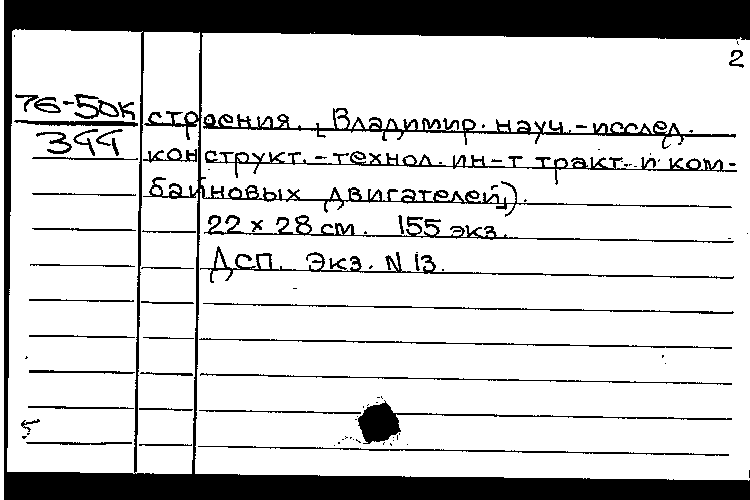 2
76-50к
344
строения. [Владимир. науч.-исслед.
конструкт.-технол. ин-т тракт. и ком-
байновых двигателей]).
22 x 28 см. 155 экз.
ДСП. Экз. N 13.
5